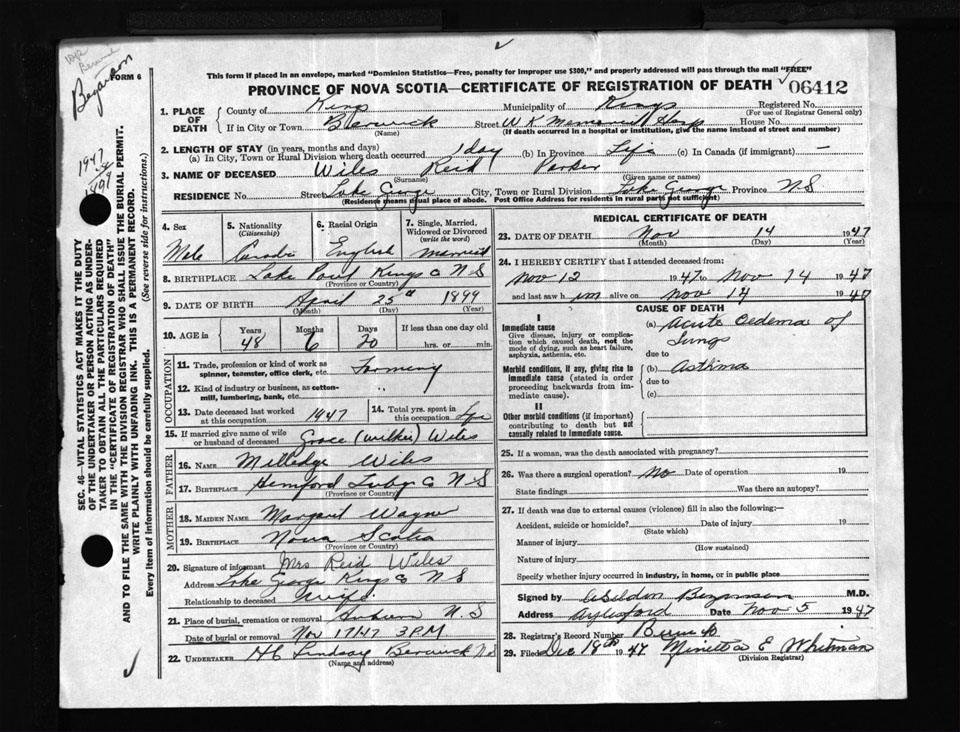 Berwick
Bezanson
FORM 6
1947
SEC. 46—VITAL STATISTICS ACT MAKES IT THE DUTY
OF THE UNDERTAKER OR PERSON ACTING AS UNDER-
TAKER TO OBTAIN ALL THE PARTICULARS REQUIRED
IN THE "CERTIFICATE OF REGISTRATION OF DEATH"
AND TO FILE THE SAME WITH THE DIVISION REGISTRAR WHO SHALL ISSUE THE BURIAL PERMIT.
WRITE PLAINLY WITH UNFADING INK. THIS IS A PERMANENT RECORD.
Every item of information should be carefully supplied. (See reverse side for instructions.)
This form if placed in an envelope, marked "Dominion Statistics—Free, penalty for improper use $300," and properly addressed will pass through the mail "FREE"
PROVINCE OF NOVA SCOTIA—CERTIFICATE OF REGISTRATION OF DEATH 06412
1. PLACE OF DEATH County of Kings Municipality of Kings Registered No.
(For use of Registrar General only)
If in City or Town Berwick Street W K Memorial Hosp House No.
(Name) (If death occurred in a hospital or institution, give the name instead of street and number)
2. LENGTH OF STAY (in years, months and days)
(a) In City, Town or Rural Division where death occurred 1 day (b) In Province Life (c) In Canada (if immigrant) —
3. NAME OF DECEASED Wiles Reid Parker
(Surname) (Given name or names)
RESIDENCE No. Street Lake George City, Town or Rural Division Lake George Province N S
(Residence means usual place of abode. Post Office Address for residents in rural parts not sufficient)
4. Sex Male
5. Nationality (Citizenship) Canadian
6. Racial Origin English
7. Single, Married, Widowed or Divorced (write the word) Married
8. BIRTHPLACE Lake Paul Kings Co N S
(Province or Country)
9. DATE OF BIRTH April 25th 1899
(Month) (Day) (Year)
10. AGE in Years Months Days If less than one day old
48 6 20 hrs. or min.
OCCUPATION
11. Trade, profession or kind of work as spinner, teamster, office clerk, etc. Farming
12. Kind of industry or business, as cotton-mill, lumbering, bank, etc. "
13. Date deceased last worked at this occupation 1947
14. Total yrs. spent in this occupation Life
15. If married give name of wife or husband of deceased Grace (Wilkie) Wiles
FATHER
16. NAME Milledge Wiles
17. BIRTHPLACE Hemford Lubg Co N S
(Province or Country)
MOTHER
18. MAIDEN NAME Margaret Wagner
19. BIRTHPLACE Nova Scotia
(Province or Country)
20. Signature of informant Mrs Reid Wiles
Address Lake George Kings Co N S
Relationship to deceased Wife
21. Place of burial, cremation or removal Auburn N.S
Date of burial or removal Nov 17/47 3 P.M
22. UNDERTAKER H C Lindsay Berwick N S
(Name and address)
MEDICAL CERTIFICATE OF DEATH
23. DATE OF DEATH Nov 14 1947
(Month) (Day) (Year)
24. I HEREBY CERTIFY that I attended deceased from:
Nov 12 1947 to Nov 14 1947
and last saw him alive on Nov 14 1947
CAUSE OF DEATH
I
Immediate cause
Give disease, injury or complication which caused death, not the mode of dying, such as heart failure, asphyxia, asthenia, etc.
(a) Acute Oedema of
Lungs
due to
Morbid conditions, if any, giving rise to immediate cause (stated in order proceeding backwards from immediate cause).
(b) Asthma
due to
(c)
II
Other morbid conditions (if important) contributing to death but not causally related to immediate cause.
25. If a woman, was the death associated with pregnancy?
26. Was there a surgical operation? No Date of operation 19
State findings Was there an autopsy?
27. If death was due to external causes (violence) fill in also the following:—
Accident, suicide or homicide? Date of injury 19
(State which)
Manner of injury
(How sustained)
Nature of injury
Specify whether injury occurred in industry, in home, or in public place
Signed by Weldon Bezanson M.D.
Address Aylesford Date Nov 5 1947
28. Registrar's Record Number
29. Filed Dec 18th 1947 Minetta E Whitman
(Division Registrar)